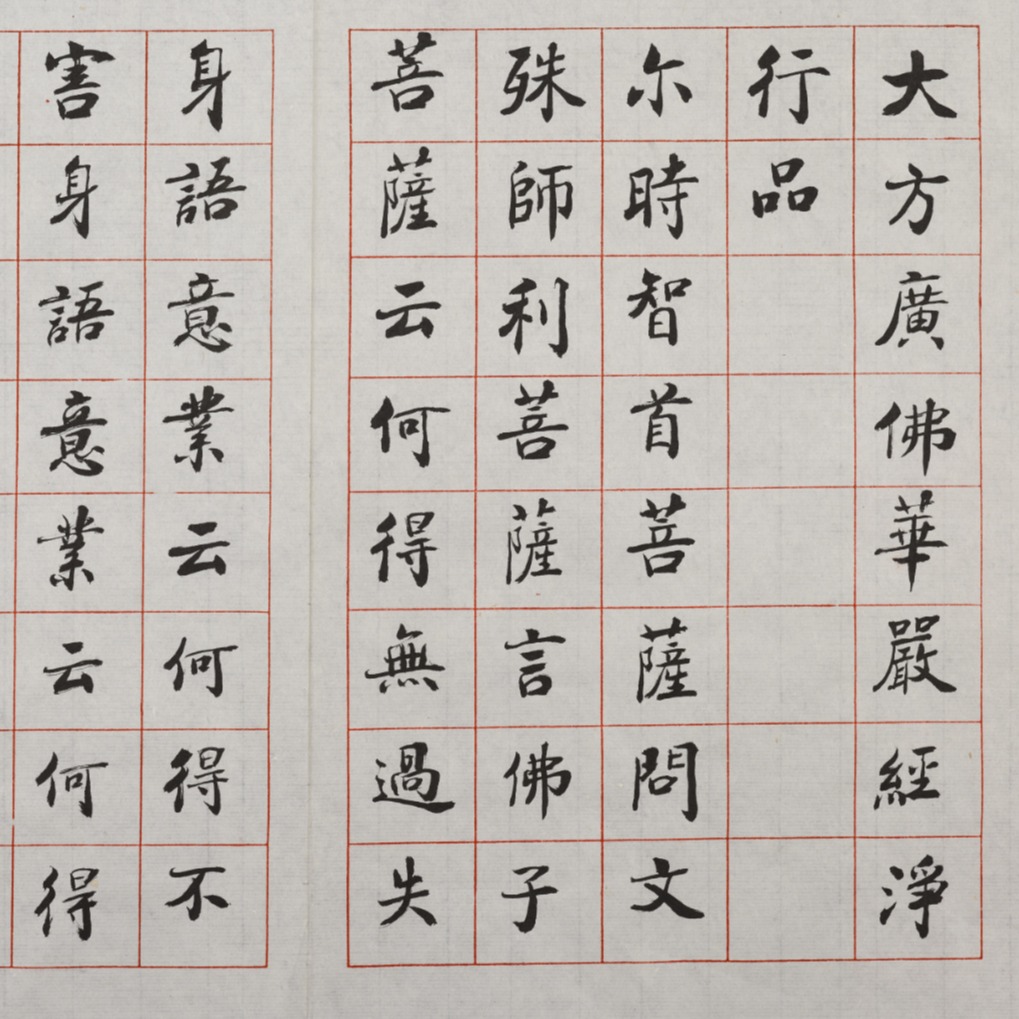 大方廣佛華嚴經淨
行品
尒時智首菩薩問文
殊師利菩薩言佛子
菩薩云何得無過失
身語意業云何得不
害身語意業云何得